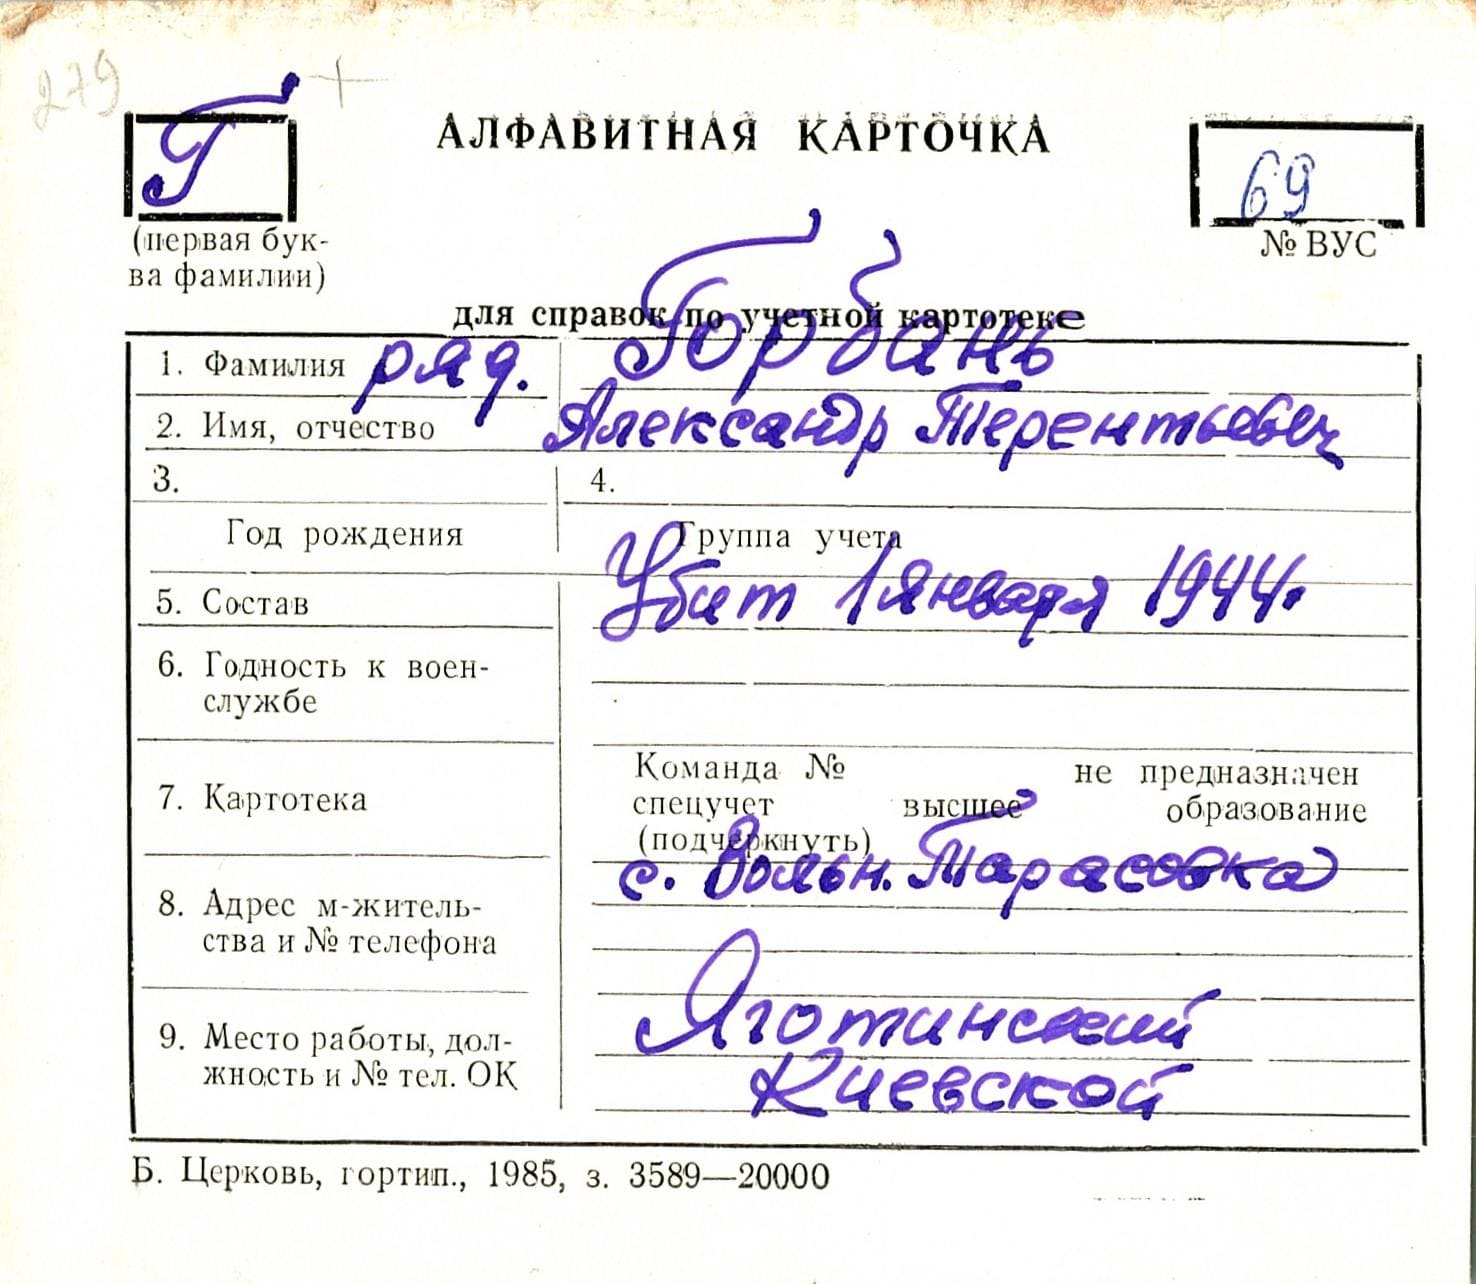 279 +
Г
АЛФАВИТНАЯ КАРТОЧКА
69
(первая бук-
ва фамилии)
№ ВУС
для справок по учетной картотеке
1. Фамилия ряд. Горбань
2. Имя, отчество Александр Терентьевич
3. 4.
Год рождения Группа учета
Убит 1 января 1944.
5. Состав
6. Годность к воен-
службе
Команда № не предназначен
7. Картотека
спецучет высшее образование
(подчеркнуть)
с. Вольн. Тарасовка
8. Адрес м-житель-
ства и № телефона
Яготинский
9. Место работы, дол-
жность и № тел. ОК
Киевской
Б. Церковь, гортип., 1985, з. 3589—20000